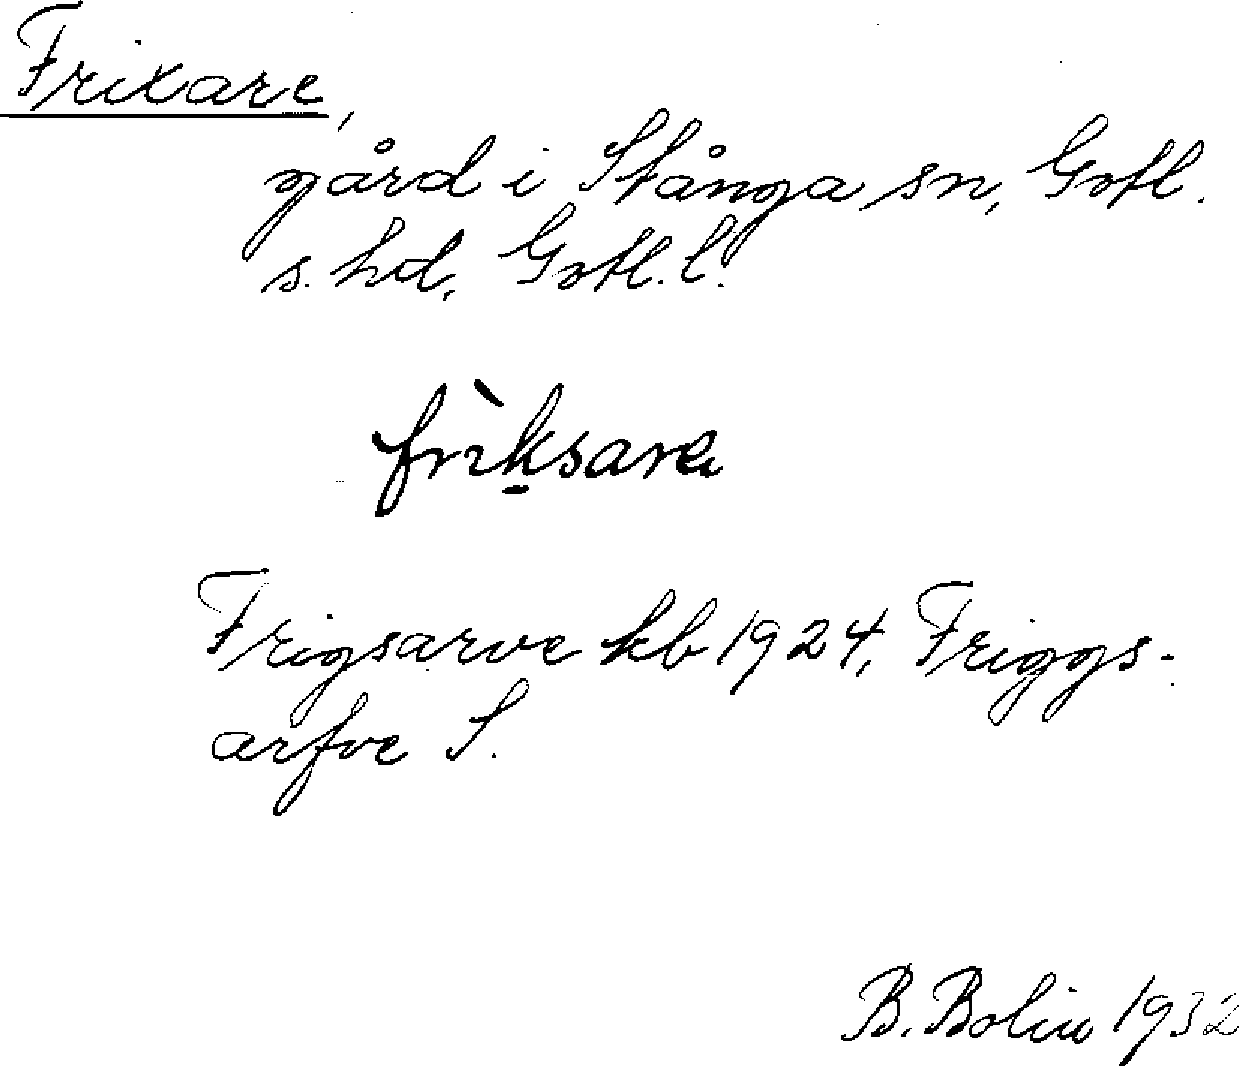 Frixare,
gård i Stånga sn, Gotl.
s. hd, Gotl. l.
frìk̠sarɐ
Frigsarve kb 1924, Friggs-
arfve S.
B. Bolin 1932